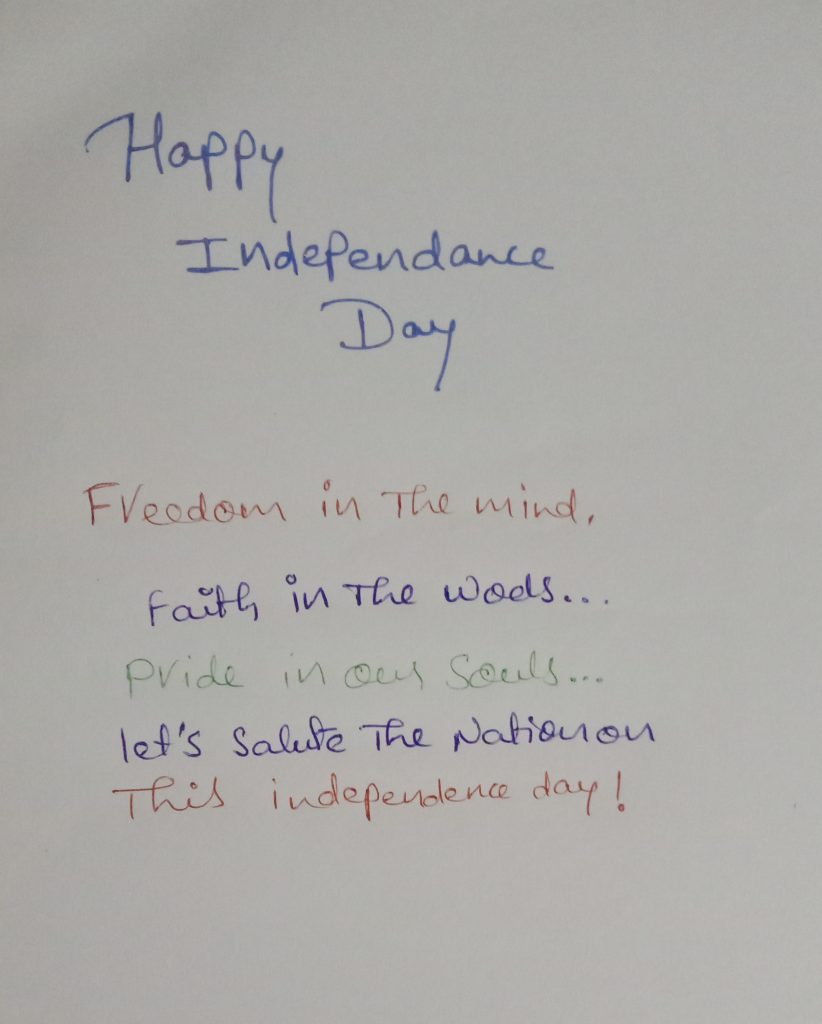 Happy
Independance
Day
Freedom in The mind,
Faith in The wods...
Pride in our souls...
let's Salute The Nation on
This independence day!